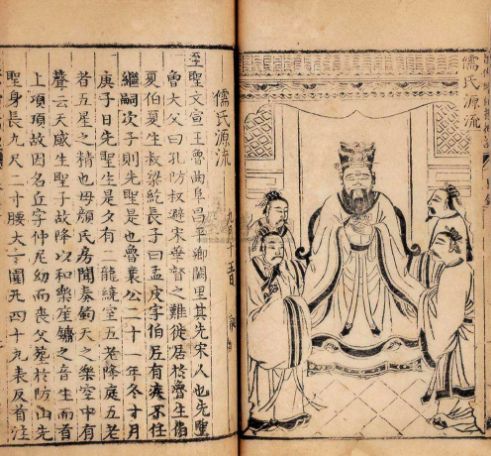 儒氏源流
儒氏源流
至聖文宣王魯曲阜昌平鄉闕里其先宋人也先聖
曾大父曰孔防叔避宋華督之難徙居於魯生伯
夏伯夏生叔梁紇長子曰孟皮字伯尼有疾不任
繼嗣次子則先聖是也魯襄公二十一年冬十月
庚子日先聖生是夕有二龍繞室五老降庭五老
者五星之精也母顏氏房聞奏鈞天之樂空中有
聲云天感生聖子故降以和樂笙鏞之音生而首
上頂故因名丘字仲尼幼而喪父葬於防山先
聖身長九尺二寸腰大十圍凡四十九表反首洼